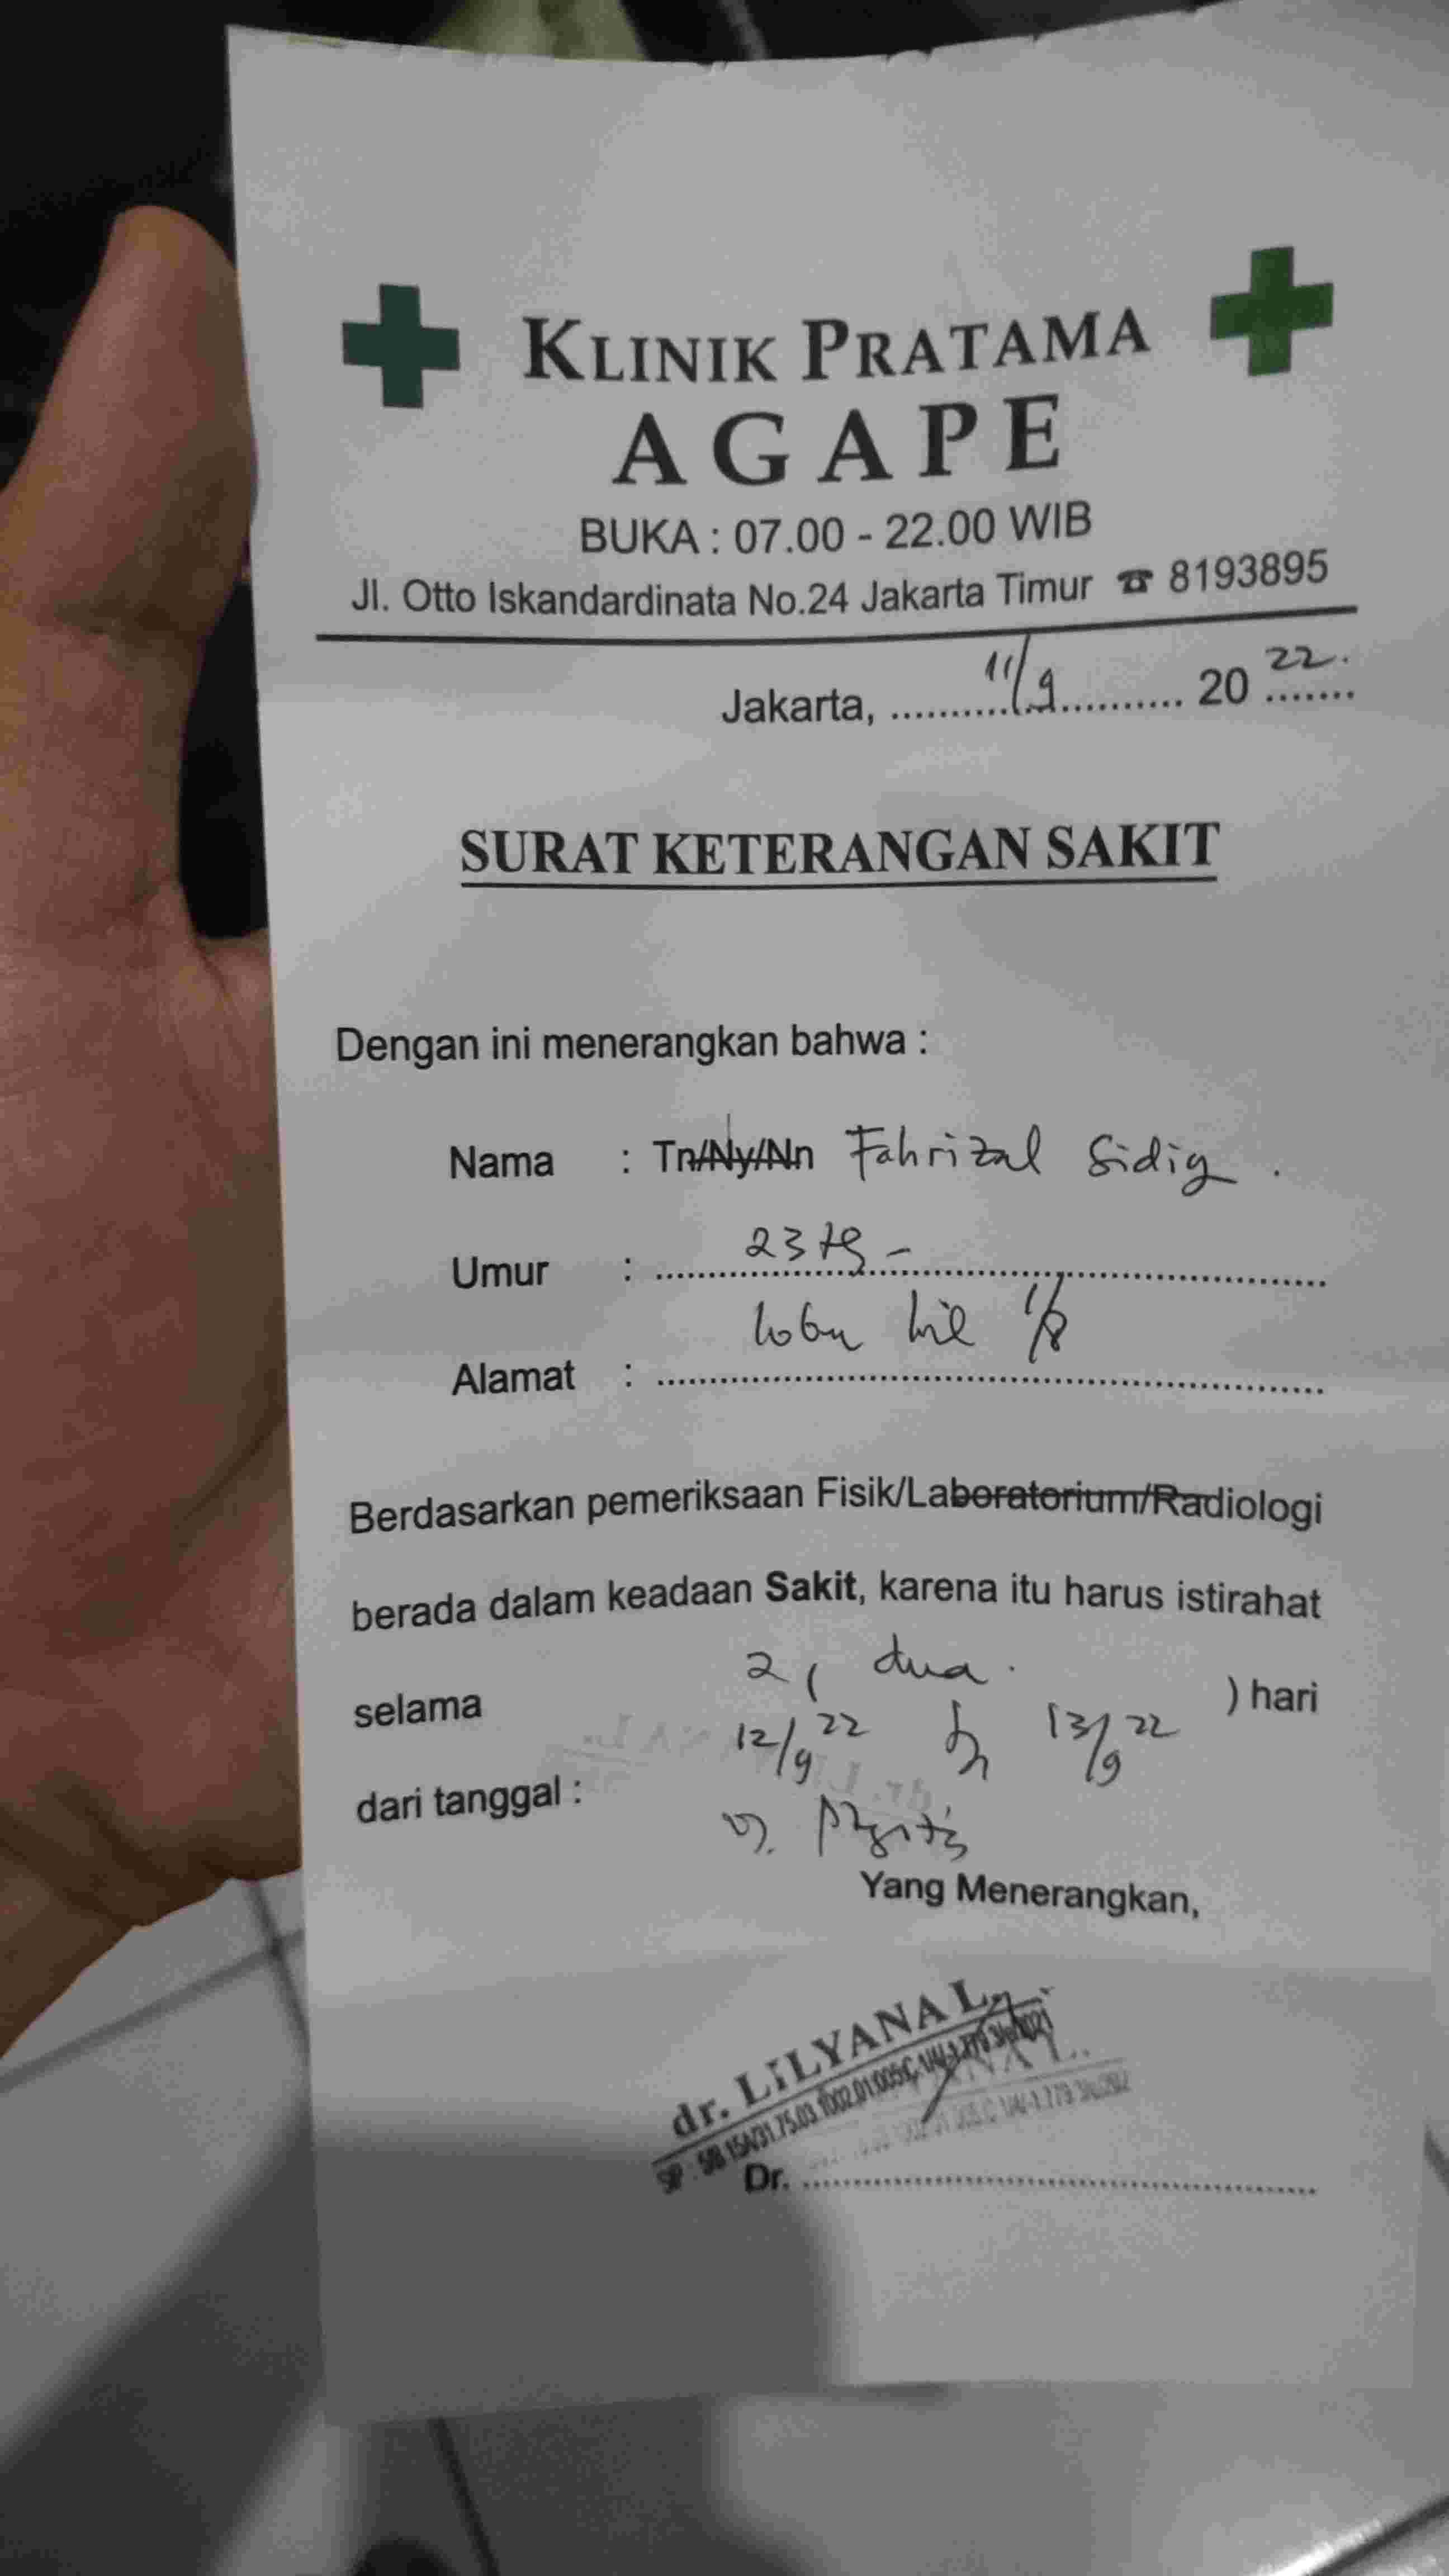 KLINIK PRATAMA
AGAPE
BUKA : 07.00 - 22.00 WIB
Jl. Otto Iskandardinata No.24 Jakarta Timur ☎ 8193895
Jakarta, 11/9 20 22.
SURAT KETERANGAN SAKIT
Dengan ini menerangkan bahwa :
Nama : Tn/Ny/Nn Fahrizal Sidiq.
Umur : 23
Alamat :
Berdasarkan pemeriksaan Fisik/Laboratorium/Radiologi
berada dalam keadaan Sakit, karena itu harus istirahat
selama 2 ( dua ) hari
dari tanggal : 12/9 22 13/9 22
Yang Menerangkan,
dr. LILYANA L.
Dr.